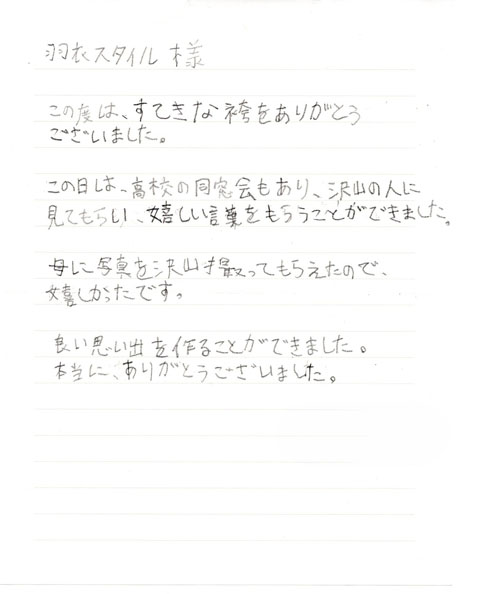 羽衣スタイル 様
この度は、すてきな袴をありがとう
ございました。
この日は、高校の同窓会もあり、沢山の人に
見てもらい、嬉しい言葉をもらうことができました。
母に写真を沢山撮ってもらえたので、
嬉しかったです。
良い思い出を作ることができました。
本当に、ありがとうございました。